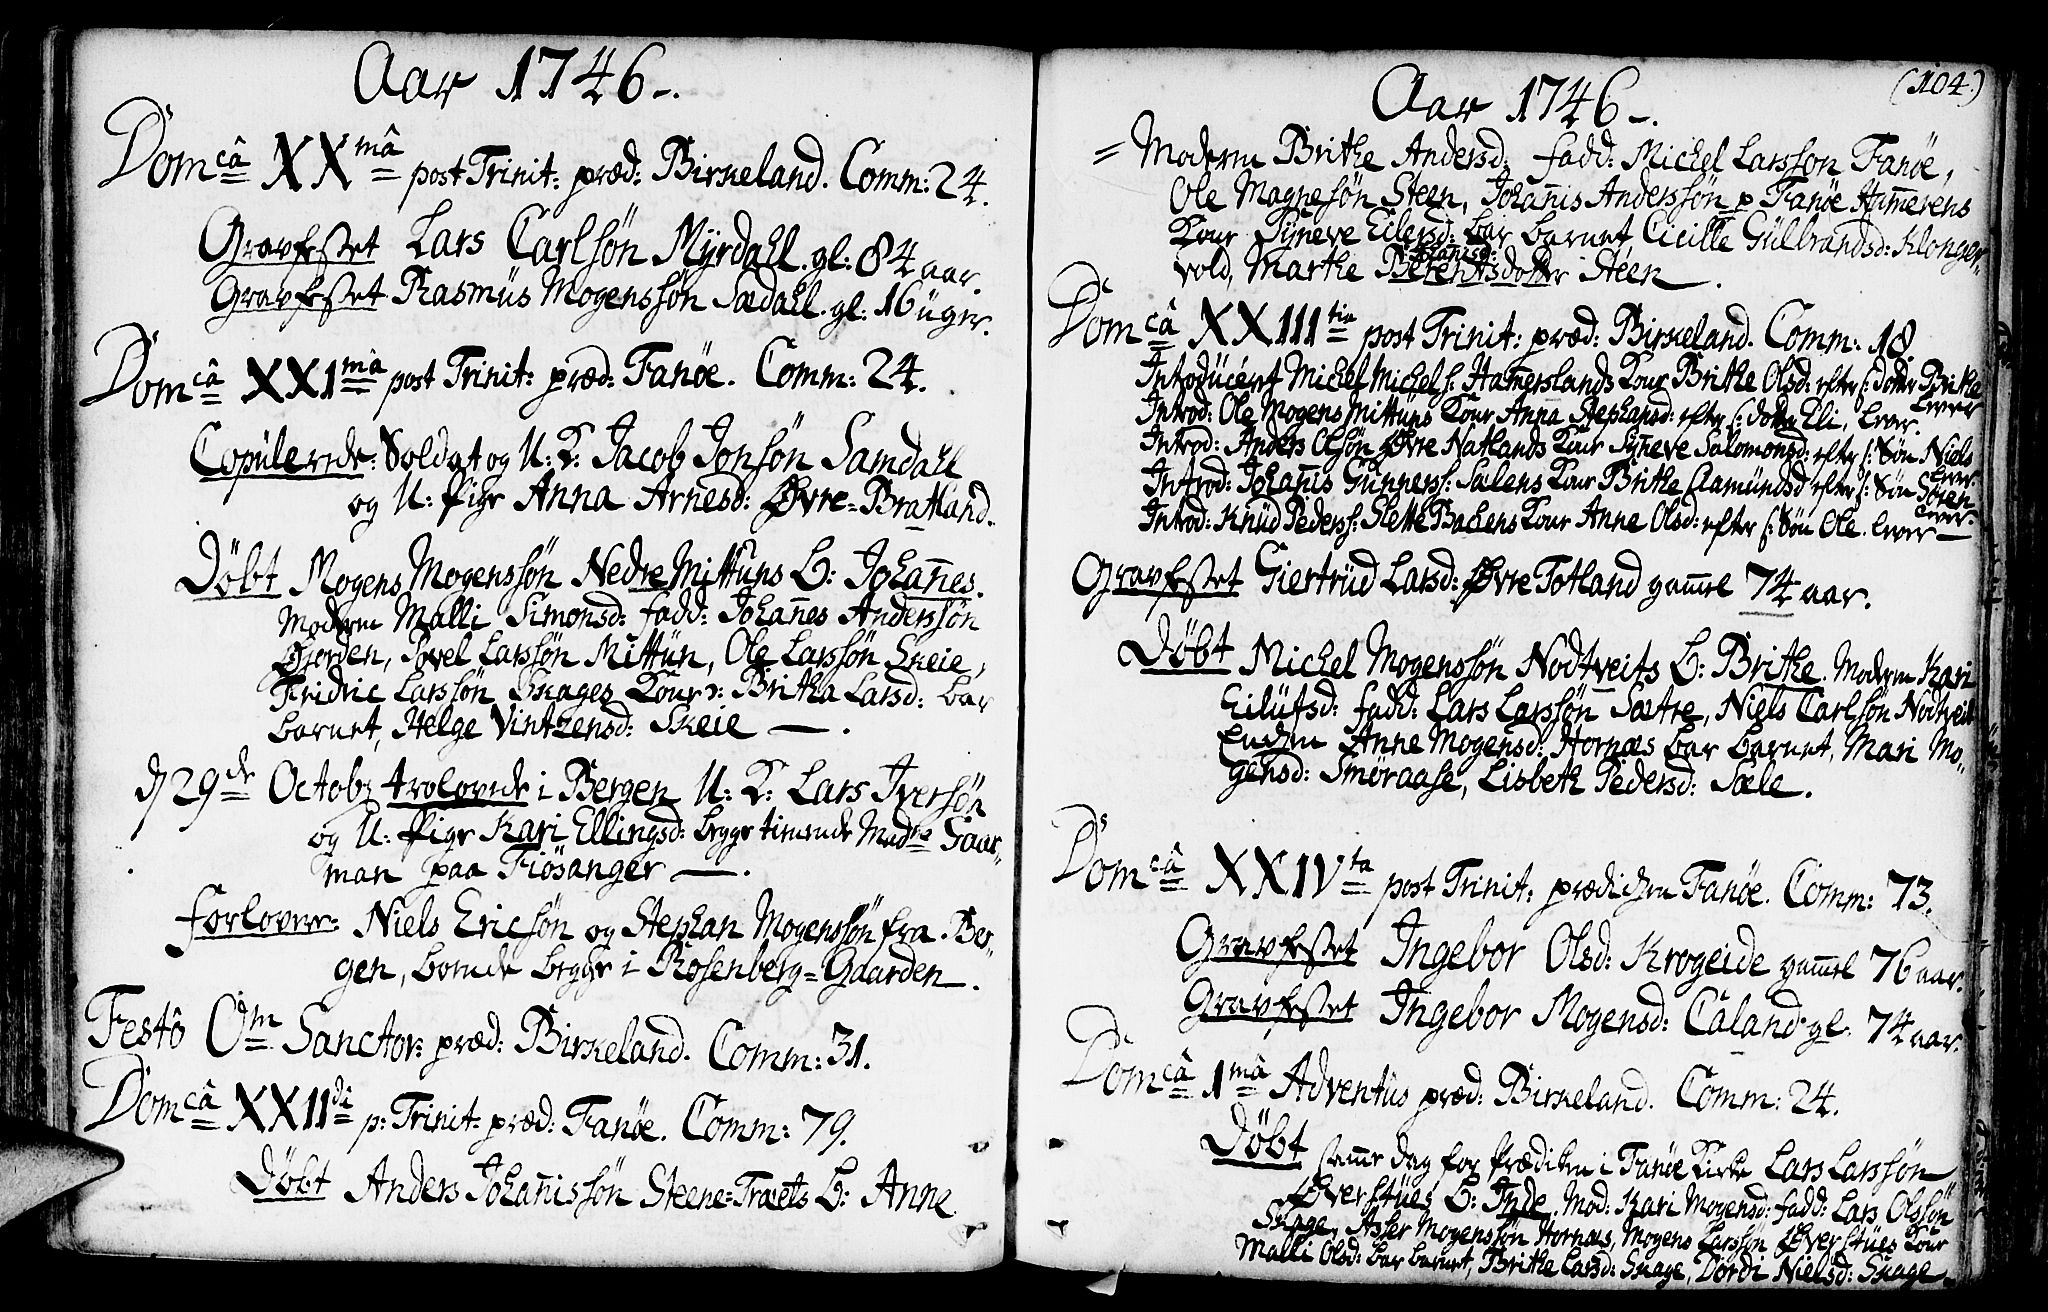 Aar 1746.
Dom câ XX mâ post Trinit: præd: Birkeland. Comm: 24.
Gravfestet Lars Carlsön Myrdahl. gl: 84 aar.
Gravfestet Rasmüs Mogenssön Sædahl. gl: 16 üger.
Dom câ XXI mâ post Trinit: præd: Fanöe. Comm: 24.
Copülerede: Soldat og U: K: Jacob Jonsön Samdahl
og U: Pige Anna Arnesd: Øvre=Bratland.
Döbt Mogens Mogenssön Nedre Mittüns B: Johañes.
Moderen Malli Simonsd: fadd: Johañes Anderssön
Fjorden, Povel Larssön Mittün, Ole Larssön Skeie,
Fridric Larssön Skages Kone: Britha Larsd: bar
barnet, Helge Vintzensd: Skeie —.
d 29 de Octobr trolovede i Bergen U: K: Lars Iversön
og U: Pige Kari Ellingsd: begge tienende Mad me Gaar-
man paa Fiösanger —.
Forlovere: Niels Ericsön og Stephan Mogenssön fra Ber-
gen, boende begge i Rosenberg=Gaarden.
Festô Om Sanctor: præd: Birkeland. Comm: 31.
Dom câ XXII di p: Trinit: præd: Fanöe. Comm: 79.
Döbt Anders Johañissön Steene=Træets B: Anne
(104.)
Aar 1746.
= Moderen Brithe Andersd: fadd: Michel Larsson Fanöe,
Ole Magnesön Steen, Johañis Anderssön p Fanöe Ham̃erens
Kone Syneve Eilersd: bar barnet, Cicille Güllbrandsd: Klonger-
vold, Marthe Berentsdotter Steen.
Dom câ XXIII tia post Trinit: præd: Birkeland. Comm: 18.
Introdücert Michel Michels: Ham̃erslands Kone Brithe Olsd: efter s: dotter Brithe
lever
Introd: Ole Mogens Mittüns Kone Anna Stephansd: efter s: dotter Eli, lever.
Introd: Anders Olsön Øvre Natlands Kone Syneve Salomonsd: efter s: Sön Niels
lever.
Introd: Johañis Gunners: Sælens Kone Brithe Aamündsd efter s: Sön Sören
lever.
Introd: Knüd Peders: Slette Backens Kone Anne Olsd: efter s: Sön Ole. lever —
Gravfestet Giertrüd Larsd: Øvre Totland gam̃el 74 aar.
Döbt Michel Mogenssön Nodtveits B: Brithe. Moderen Kari
Eilüfsd: fadd: Lars Larssön Sætre, Niels Carlsön Nodtveit
Enchen Anne Mogensd: Hornæs bar barnet, Mari Mo-
gensd: Smöraase, Lisbeth Pedersd: Sæle.
Dom câ XXIV ta post Trinit: prædichen Fanöe. Comm: 73.
Gravfestet Ingebor Olsd: Krogeide gam̃el 76 aar.
Gravfestet Ingebor Mogensd: Caland. gl. 74 aar.
Dom câ 1 mâ Adventüs præd: Birkeland. Comm: 24.
Döbt sam̃e dag for Prædiken i Fanöe Kirke Lars Larssön
Øverstües B: Inde. Mod: Kari Mogensd: fadd: Lars Olssön
Skage, Asser Mogenssön Hornæs, Mogens Larssön Øverstües Kone
Malli Olsd: bar barnet, Brithe Larsd: Skage, Dordi Nielsd: Skage.